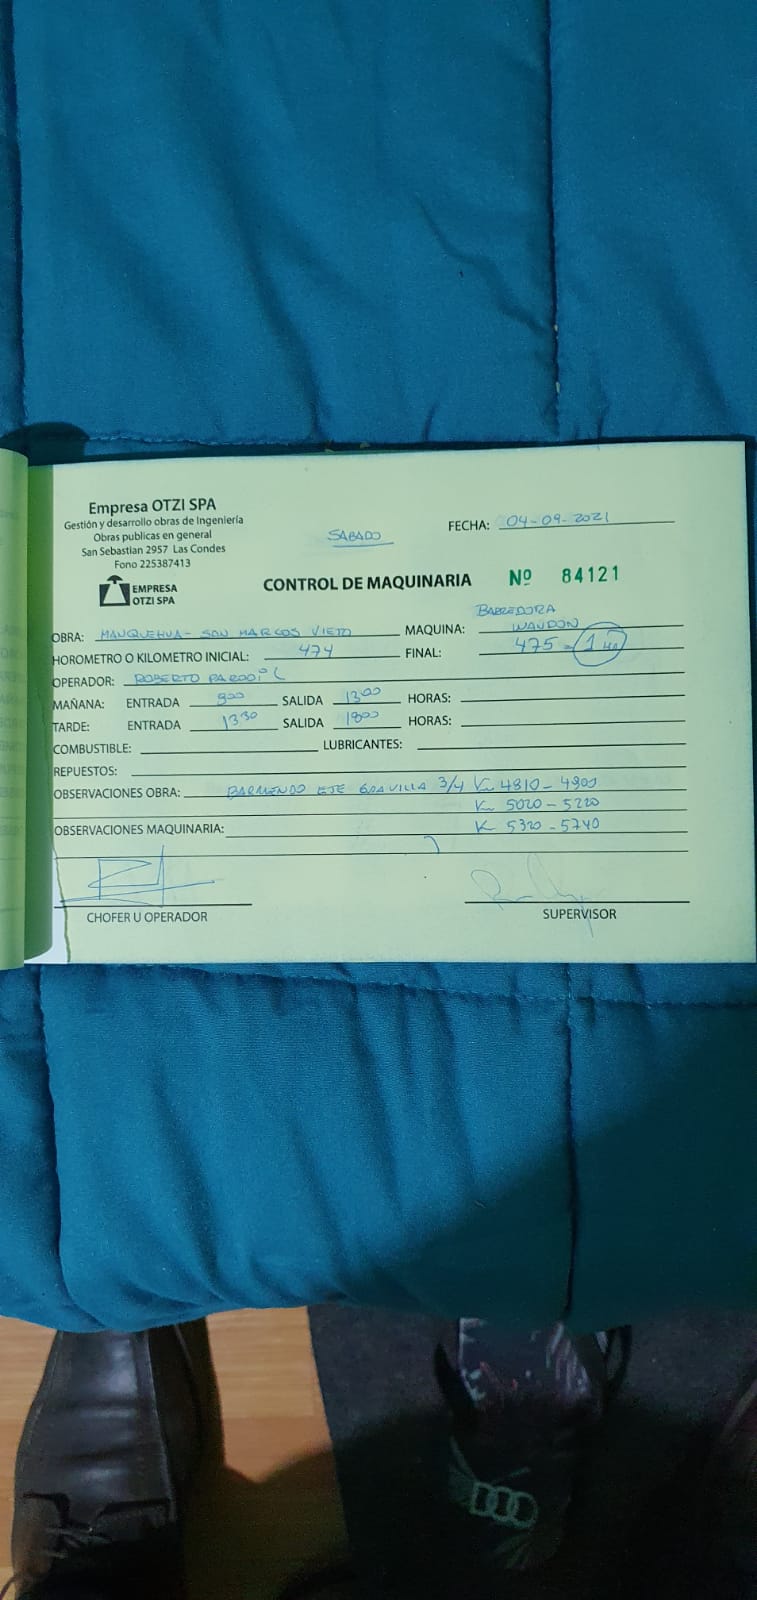 Empresa OTZI SPA
Gestión y desarrollo obras de Ingeniería
Obras publicas en general
San Sebastian 2957 Las Condes
Fono 225387413
EMPRESA
OTZI SPA
SABADO
FECHA: 04-09-2021
CONTROL DE MAQUINARIA Nº 84121
BARREDORA
OBRA: MANQUEHUA - SAN MARCOS VIEJO MAQUINA: WALDON
HOROMETRO O KILOMETRO INICIAL: 474 FINAL: 475 = 1
OPERADOR: ROBERTO PARODI C
MAÑANA: ENTRADA 800 SALIDA 1300 HORAS:
TARDE: ENTRADA 1330 SALIDA 1800 HORAS:
COMBUSTIBLE: LUBRICANTES:
REPUESTOS:
OBSERVACIONES OBRA: BARRIENDO EJE GRAVILLA 3/4 Km 4810 - 4900
Km 5020 - 5220
OBSERVACIONES MAQUINARIA: K 5320 - 5740
CHOFER U OPERADOR
SUPERVISOR